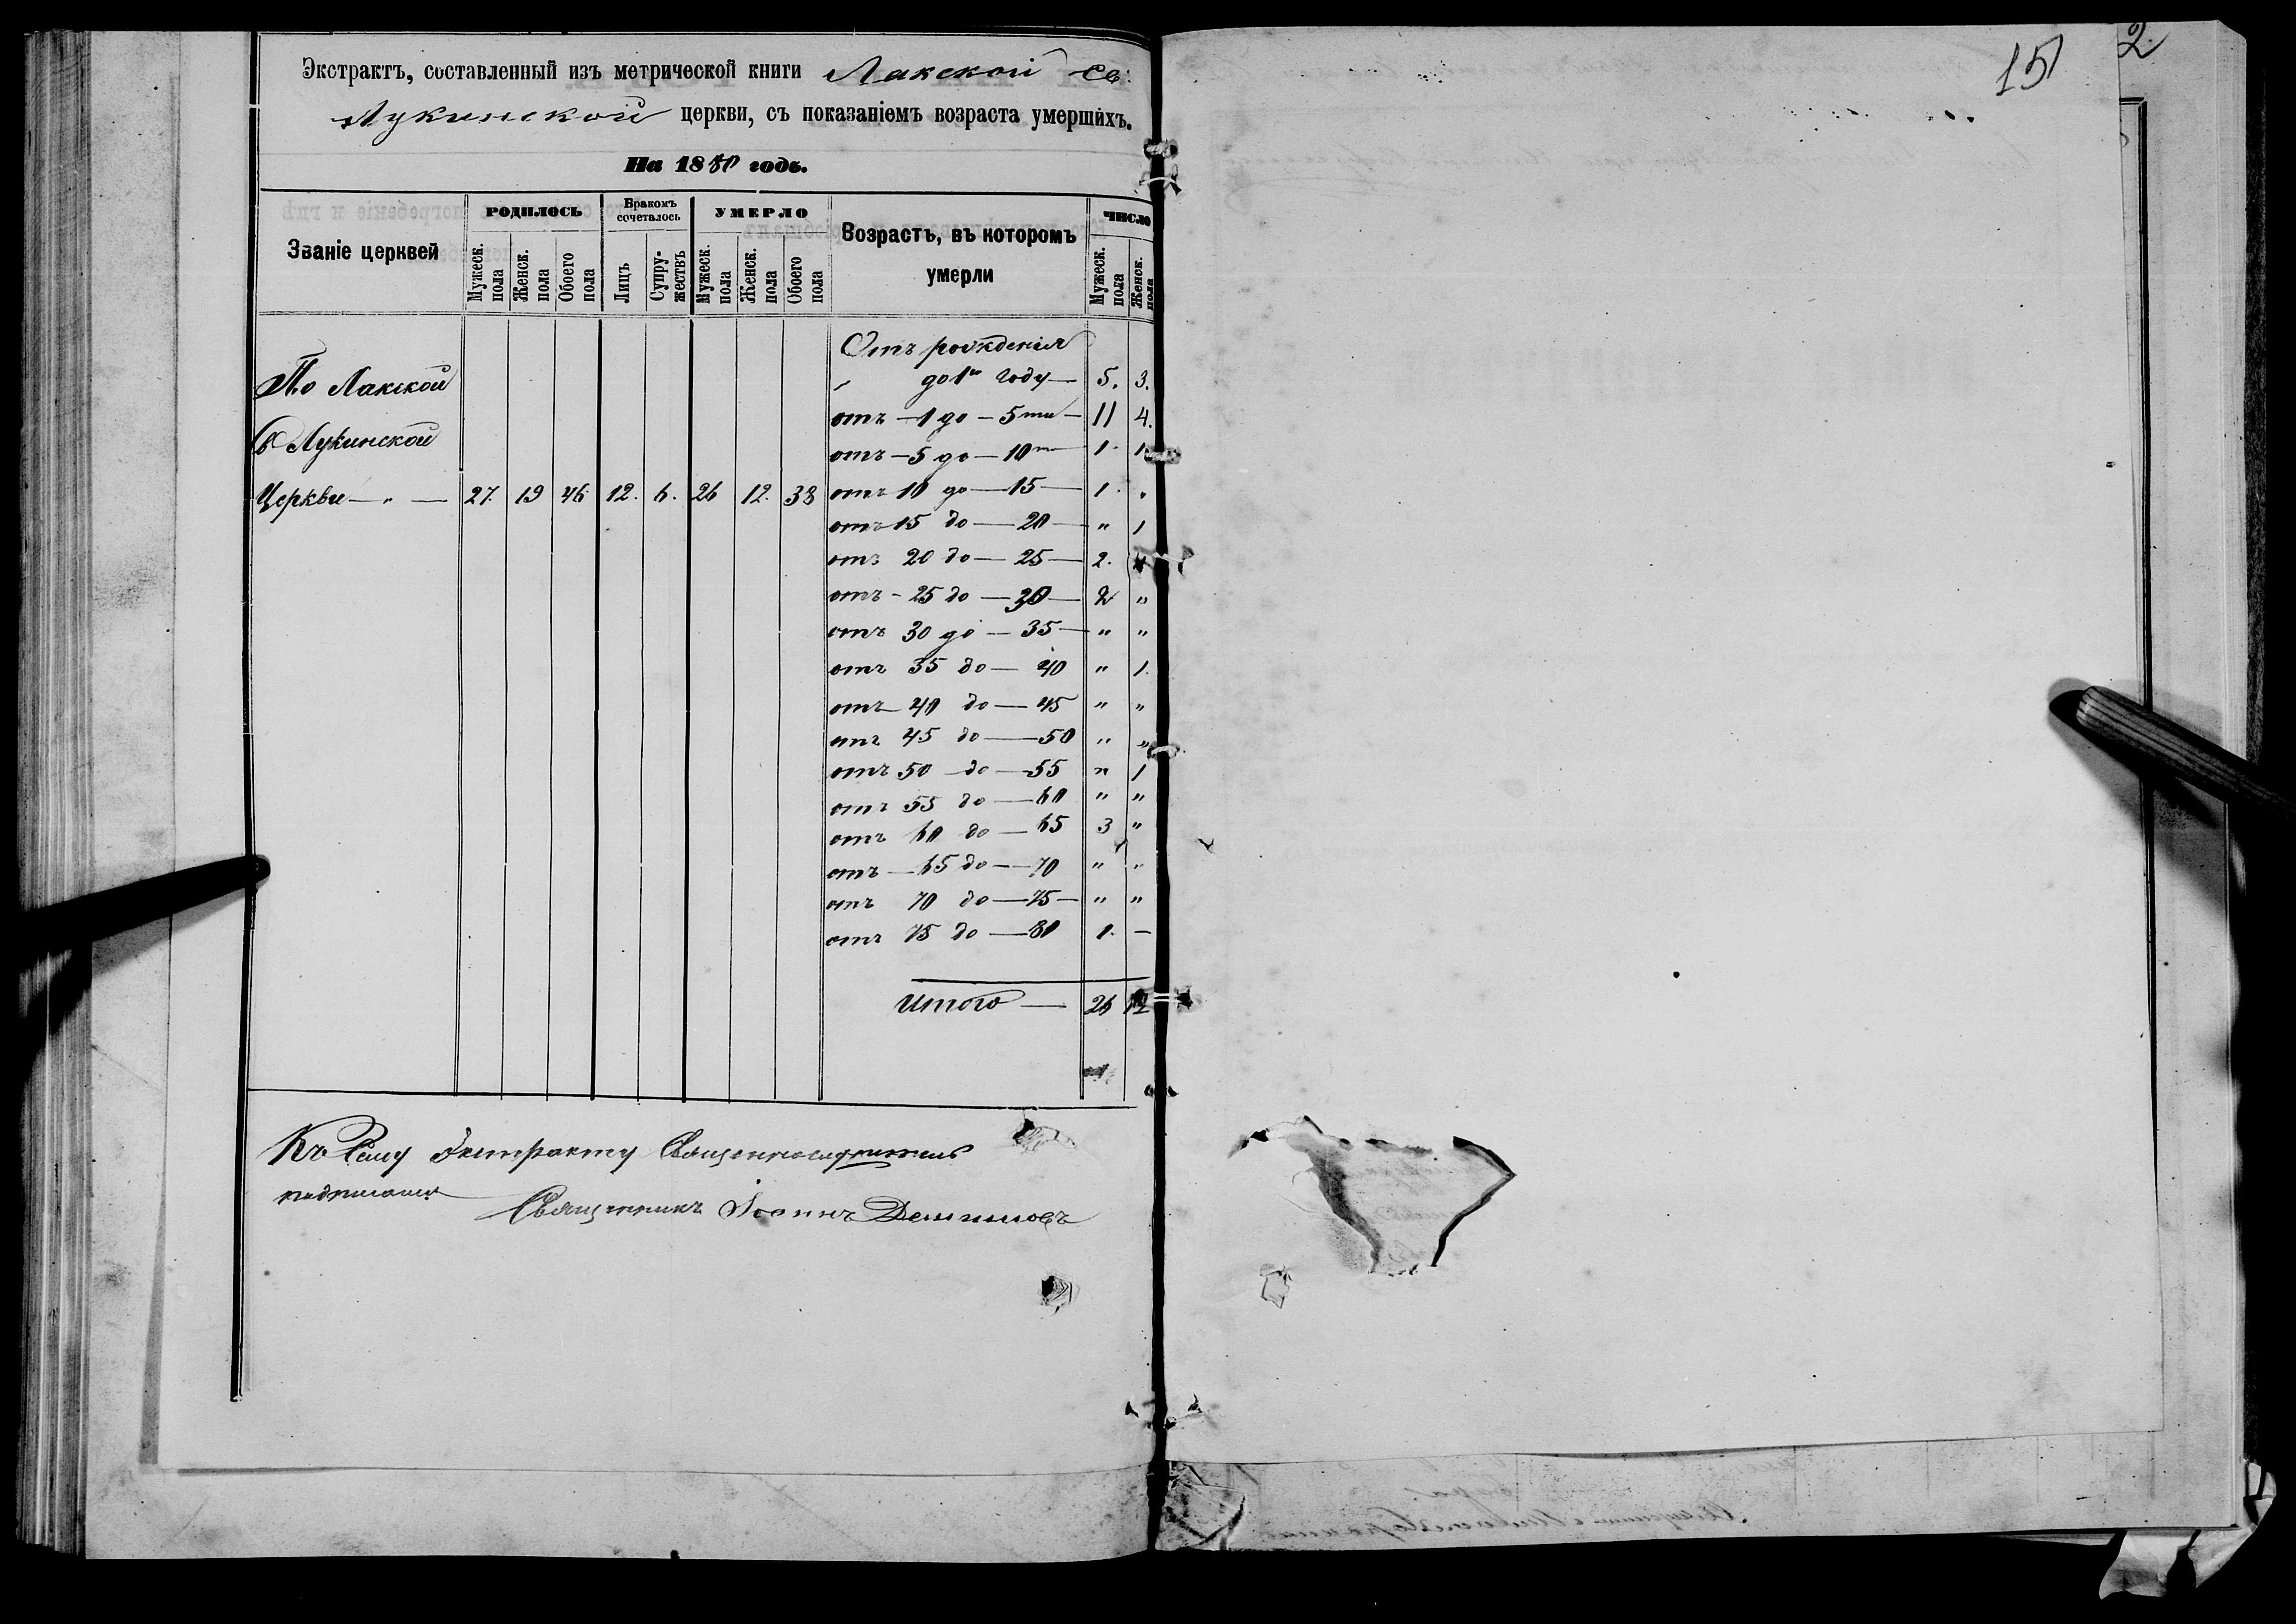 Экстрактъ, составленный изъ метрической книги Лакской Св:
Лукинской церкви, съ показаніемъ возраста умершихъ.
На 1880 годъ.
Званіе церквей
РОДИЛОСЬ
Бракомъ сочеталось
УМЕРЛО
Возрастъ, въ которомъ умерли
ЧИСЛО
Мужеск. пола
Женск. пола
Обоего пола
Лицъ
Супружествъ
Мужеск. пола
Женск. пола
Обоего пола
Мужеск. пола
Женск. пола
Отъ рожденія
По Лакской до 1го году — 5. 3.
отъ — 1 до — 5ти — 11 4.
Св Лукинской
отъ — 5 до — 10ти — 1. 1
Церкви — " — 27. 19 46 12. 6. 26 12. 38 отъ 10 до — 15 — 1. "
отъ 15 до — 20 — " 1
отъ 20 до — 25 — 2.
отъ - 25 до — 30 — 2 "
отъ 30 до — 35 — " "
отъ 35 до — 40 " 1.
отъ — 40 до — 45 " "
отъ 45 до — 50 " "
отъ 50 — до — 55 " 1
отъ 55 до — 60 " "
отъ 60 до — 65 3 "
отъ — 65 до — 70 " "
отъ 70 до — 75 — " "
отъ 75 до — 80 1. —
Итого — 26 12
Къ сему Экстракту Священнослужитель
подписался Священникъ Іоаннъ
15
2